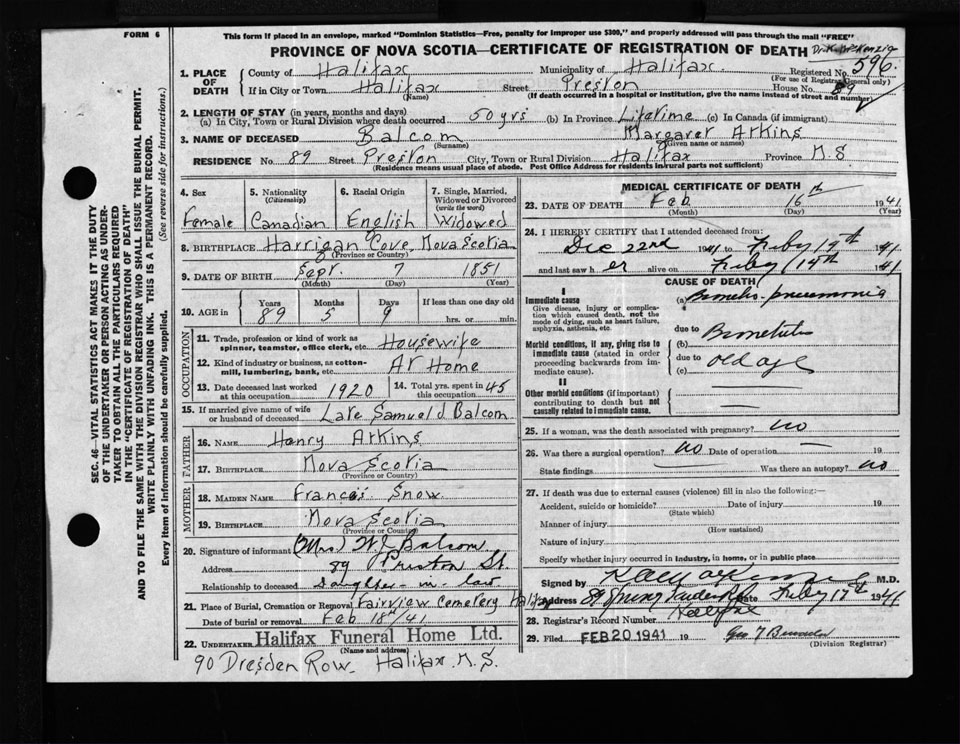 FORM 6
This form if placed in an envelope, marked "Dominion Statistics—Free, penalty for improper use $300," and properly addressed will pass through the mail "FREE"
PROVINCE OF NOVA SCOTIA—CERTIFICATE OF REGISTRATION OF DEATH
1. PLACE OF DEATH
County of Halifax Municipality of Halifax. Registered No. 596.
(For use of Registrar General only)
If in City or Town Halifax Street Preston House No. 89
(Name) (If death occurred in a hospital or institution, give the name instead of street and number)
2. LENGTH OF STAY (in years, months and days)
(a) In City, Town or Rural Division where death occurred 50 yrs (b) In Province Lifetime (c) In Canada (if immigrant)
3. NAME OF DECEASED Balcom Margaret Atkins
(Surname) (Given name or names)
RESIDENCE No. 89 Street Preston City, Town or Rural Division Halifax Province N.S.
(Residence means usual place of abode. Post Office Address for residents in rural parts not sufficient)
4. Sex
Female
5. Nationality
(Citizenship)
Canadian
6. Racial Origin
English
7. Single, Married, Widowed or Divorced
(write the word)
Widowed
8. BIRTHPLACE Harrigan Cove, Nova Scotia
(Province or Country)
9. DATE OF BIRTH Sept. 7 1851
(Month) (Day) (Year)
10. AGE in
Years Months Days If less than one day old
89 5 9 hrs. or min.
OCCUPATION
11. Trade, profession or kind of work as spinner, teamster, office clerk, etc. Housewife
12. Kind of industry or business, as cotton-mill, lumbering, bank, etc. At Home
13. Date deceased last worked at this occupation 1920
14. Total yrs. spent in this occupation 45
15. If married give name of wife or husband of deceased Late Samuel J Balcom
FATHER
16. NAME Henry Atkins
17. BIRTHPLACE Nova Scotia
(Province or Country)
MOTHER
18. MAIDEN NAME Frances Snow
19. BIRTHPLACE Nova Scotia
(Province or Country)
20. Signature of informant (Mrs) W. J. Balcom
Address 89 Preston St.
Relationship to deceased Daughter-in-law
21. Place of Burial, Cremation or Removal Fairview Cemetery Halifax
Date of burial or removal Feb 18th/41
22. UNDERTAKER Halifax Funeral Home Ltd.
(Name and address)
90 Dresden Row. Halifax N.S.
MEDICAL CERTIFICATE OF DEATH
23. DATE OF DEATH Feb. 16th 1941
(Month) (Day) (Year)
24. I HEREBY CERTIFY that I attended deceased from:
Dec 22nd 1941 to Feby 19th 1941
and last saw her alive on Feby 14th 1941
CAUSE OF DEATH
I
Immediate cause
Give disease, injury or complication which caused death, not the mode of dying, such as heart failure, asphyxia, asthenia, etc.
(a) Broncho-pneumonia
due to
Morbid conditions, if any, giving rise to immediate cause (stated in order proceeding backwards from immediate cause).
(b) Bronchitis
due to
(c) old age
II
Other morbid conditions (if important) contributing to death but not causally related to immediate cause.
25. If a woman, was the death associated with pregnancy? no
26. Was there a surgical operation? no Date of operation 19
State findings Was there an autopsy? no
27. If death was due to external causes (violence) fill in also the following:—
Accident, suicide or homicide? Date of injury 19
(State which)
Manner of injury
(How sustained)
Nature of injury
Specify whether injury occurred in industry, in home, or in public place
Signed by M.D.
Address Spring Garden Rd Date Feby 17th 1941
Halifax
28. Registrar's Record Number
29. Filed FEB 20 1941 19
(Division Registrar)
SEC. 46—VITAL STATISTICS ACT MAKES IT THE DUTY OF THE UNDERTAKER OR PERSON ACTING AS UNDERTAKER TO OBTAIN ALL THE PARTICULARS REQUIRED IN THE "CERTIFICATE OF REGISTRATION OF DEATH"
AND TO FILE THE SAME WITH THE DIVISION REGISTRAR WHO SHALL ISSUE THE BURIAL PERMIT.
WRITE PLAINLY WITH UNFADING INK. THIS IS A PERMANENT RECORD.
Every item of information should be carefully supplied. (See reverse side for instructions.)